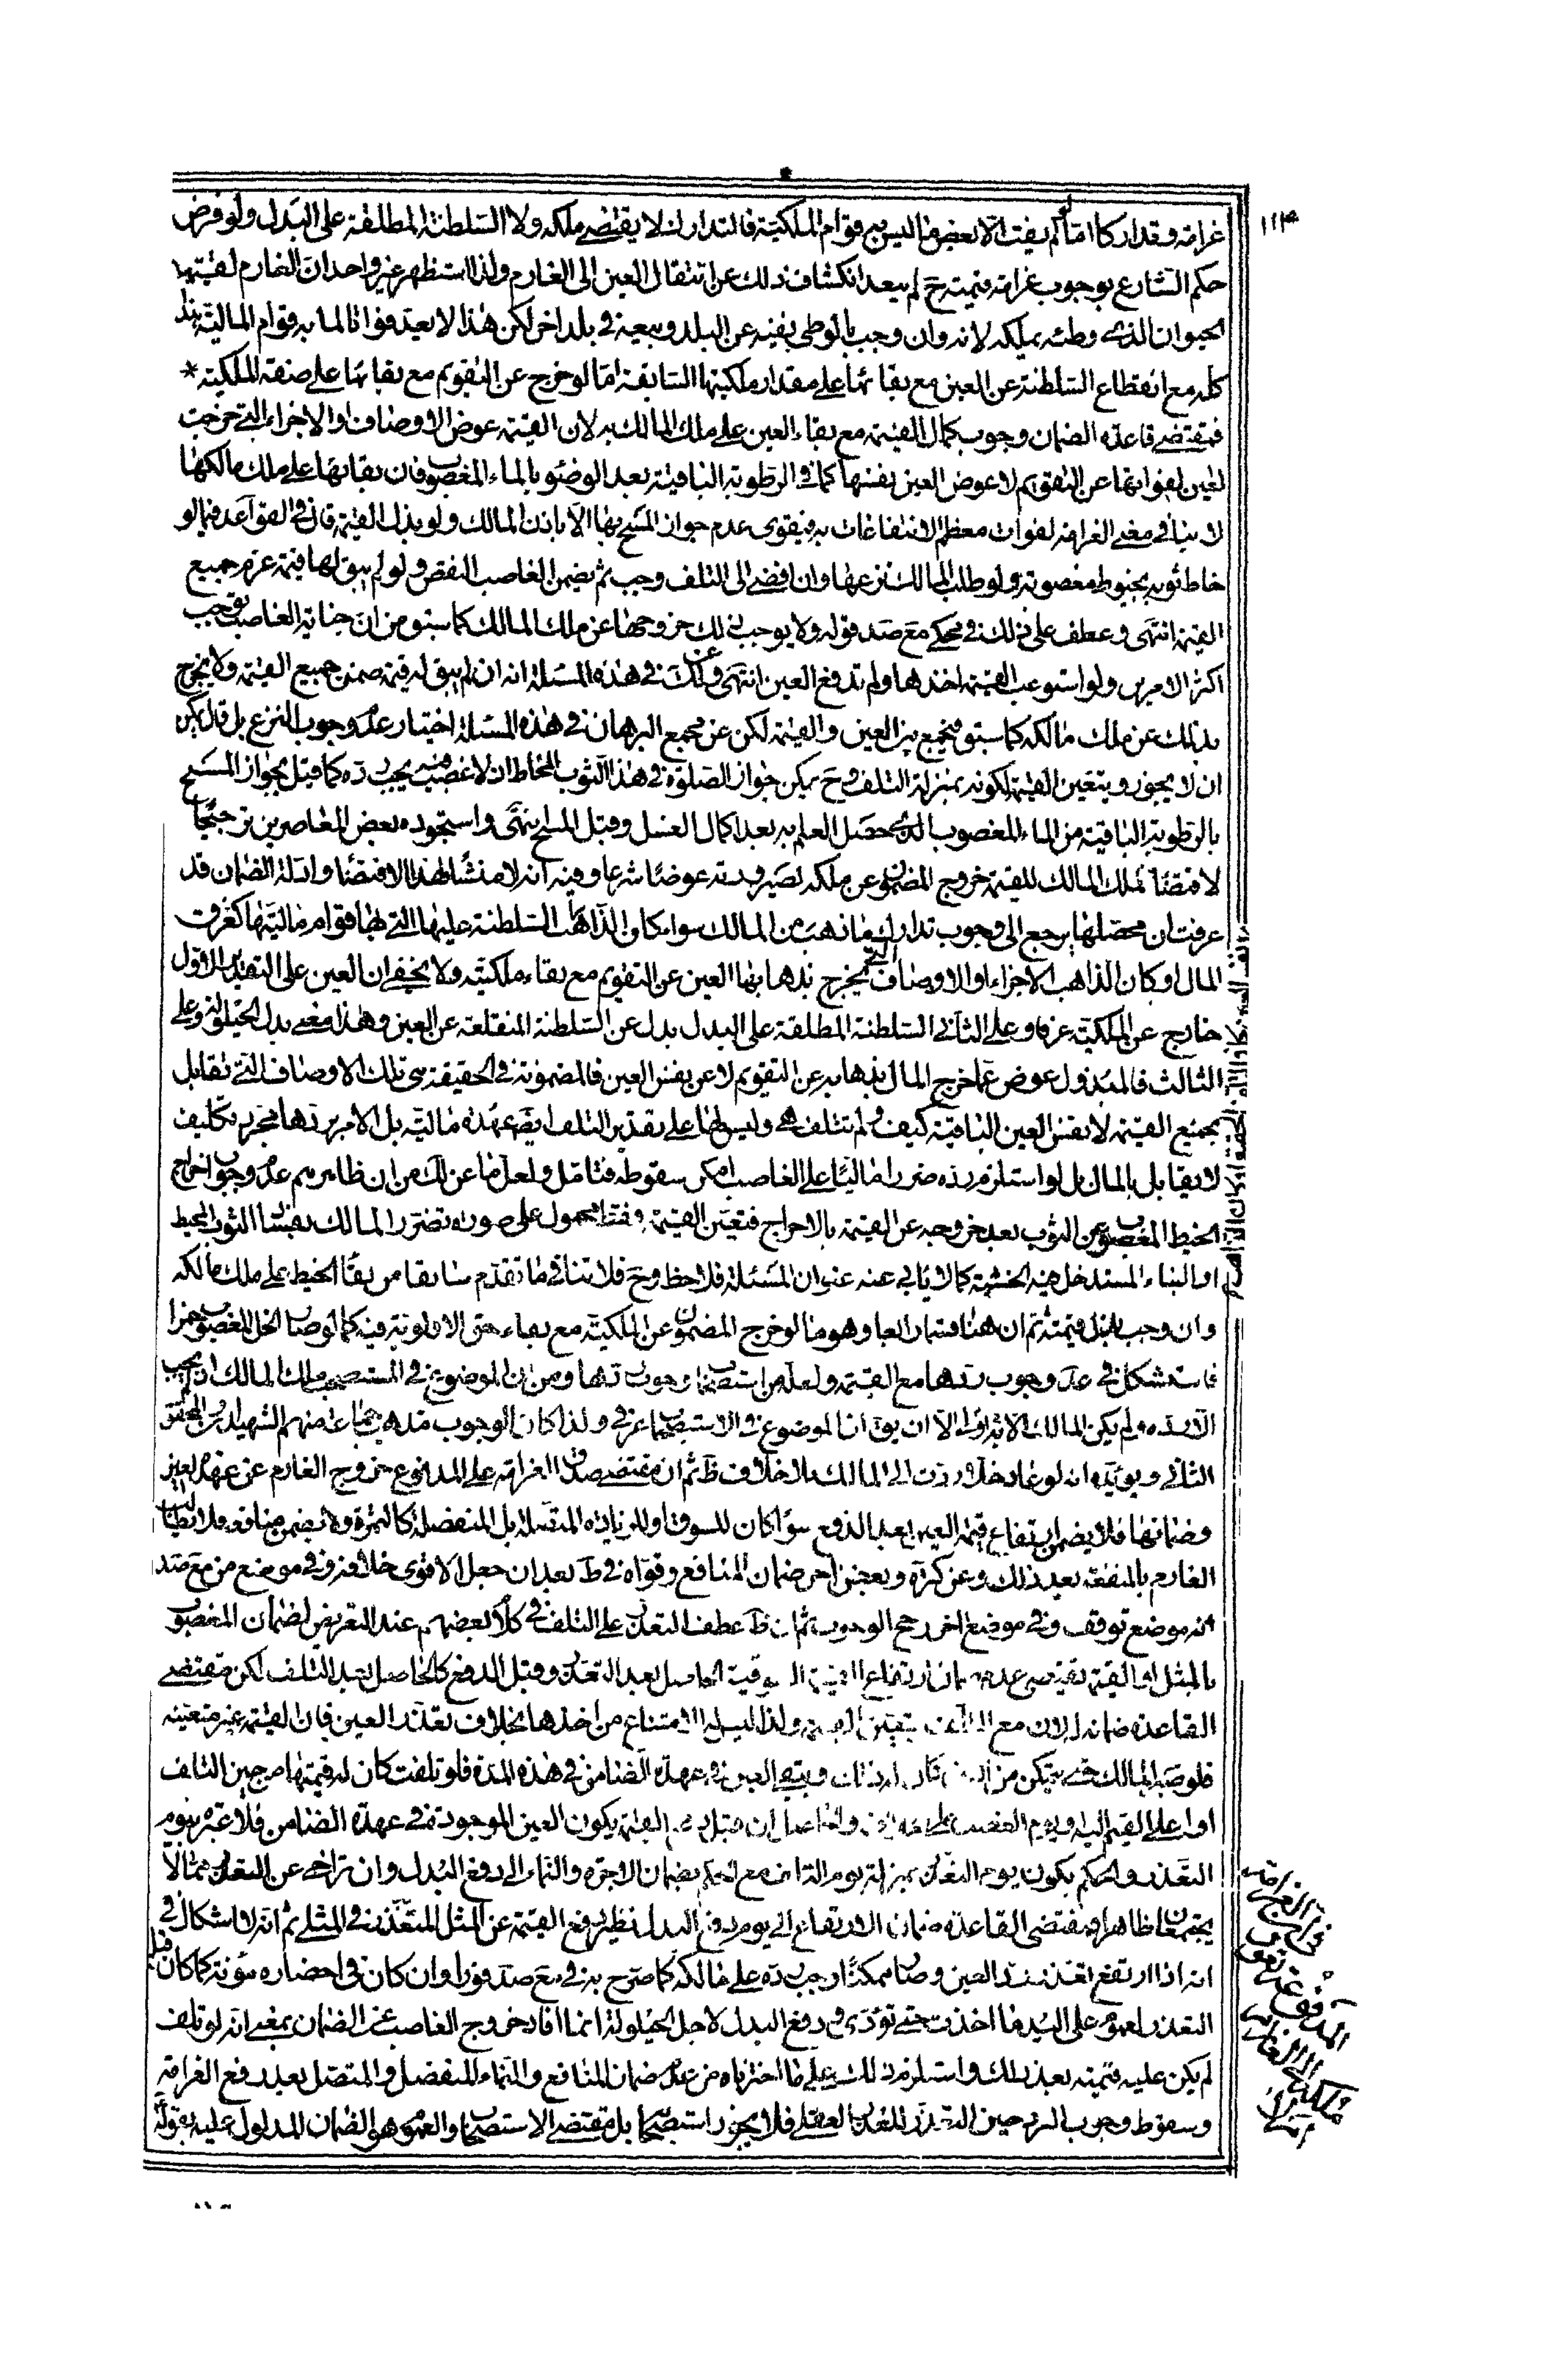 ١١٣
غرامة وتداركا امّا لو لم يفت الّا بعض ما ليس به قوام الملكيّة فالتدارك لا يقتضي ملكه ولا السّلطنة المطلقة على البدل ولو فرض
حكم الشّارع بوجوب غرامة قيمته ح لم يبعد انكشاف ذلك عن انتقال العين الى الغارم ولذا استظهر غير واحد انّ الغارم لقيمة
الحيوان الذي وطئه يملكه لانه وان وجب بالوطي نفيه عن البلد وبيعه في بلد اخر لكن هذا لا يعد فواتا لما به قوام الماليّة هذا
كله مع انقطاع السّلطنة عن العين مع بقائها على مقدار ملكيتها السّابقة امّا لو خرج عن التقويم مع بقائها على صفة الملكيّة
فمقتضى قاعدة الضمان وجوب كمال القيمة مع بقاء العين على ملك المالك لان القيمة عوض الاوصاف او الاجزاء التي خرجت
العين لفواتها عن التقويم لا عوض العين نفسها كما في الرّطوبة الباقية بعد الوضوء بالماء المغصوب فان بقائها على ملك مالكها
لا ينافي معنى الغرامة لفوات معظم الانتفاعات به فيقوى عدم جواز المسح بها الّا باذن المالك ولو بذل القيمة قال في القواعد فيما لو
خاط ثوبه بخيوط مغصوبة ولو طلب المالك نزعها وان افضى الى التلف وجب ثم يضمن الغاصب النقص ولو لم يبق لها قيمة غرم جميع
القيمة انتهى وعطف على ذلك في محكي مع صد قوله ولا يوجب ذلك خروجها عن ملك المالك كما سبق من انّ جناية الغاصب توجب
اكثر الامرين ولو استوعب القيمة اخذها ولم تدفع العين انتهى وعن لك في هذه المسئلة انه ان لم يبق له قيمة ضمن جميع القيمة ولا يخرج
بذلك عن ملك مالكه كما سبق فيجمع بين العين والقيمة لكن عن مجمع البرهان في هذه المسئلة اختيار عدم وجوب النزع بل قال يمكن
ان لا يجوز ويتعين القيمة لكونه بمنزلة التلف وح يمكن جواز الصّلوة في هذا الثوب المخاط اذ لا غصب فيه يجب رده كما قيل بجواز المسح
بالرّطوبة الباقية من الماء المغصوب الذي حصل العلم به بعد اكمال الغسل وقبل المسح انتهى واستجوده بعض المعاصرين ترجيحا
لاقتضاء ملك المالك للقيمة خروج المضمون عن ملكه لصيرورته عوضا شرعا وفيه انه لا منشأ لهذا الاقتضاء وادلة الضمان قد
عرفت ان محصلها يرجع الى وجوب تدارك ما ذهب من المالك سواء كان الذاهب السّلطنة عليها التي بها قوام ماليّتها كغرق
المال او كان الذاهب الاجزاء او الاوصاف التي يخرج بذهابها العين عن التقويم مع بقاء ملكيّته ولا يخفى ان العين على التقدير الاوّل
خارج عن الملكيّة عرفا وعلى الثاني السّلطنة المطلقة على البدل بدل عن السّلطنة المنقلعة عن العين وهذا معنى بدل الحيلولة وعلى
الثالث فالمبذول عوض عما خرج المال بذهابه عن التقويم لا عن نفس العين فالمضمونة في الحقيقة هي تلك الاوصاف التي تقابل
بجميع القيمة لا نفس العين الباقية كيف ولم تتلف هي وليس لها على تقدير التلف ايضا عهدة مالية بل الامر بردها مجرد تكليف
لا يقابل بالمال بل لو استلزم رده ضررا ماليّا على الغاصب امكن سقوطه فتامّل ولعل ما عن لك من ان ظاهرهم عدم وجوب اخراج
الخيط المغصوب عن الثوب بعد خروجه عن القيمة بالاخراج فتعين القيمة فقط محمول على صورة تضرّر المالك بفساد الثوب المخيط
او البناء المستدخل فيه الخشبة كما لا يابى عنه عنوان المسئلة فلاحظ وح فلا تنافي ما تقدّم سابقا من بقاء الخيط على ملك مالكه
وان وجب بذل قيمته ثم ان هنا قسما رابعا وهو ما لو خرج المضمون عن الملكيّة مع بقاء حق الاولوية فيه كما لو صار الخل المغصوب خمرا
فاستشكل في عد وجوب ردها مع القيمة ولعله من استصحاب وجوب ردها ومن ان الموضوع في المستصحب ملك المالك اذ لم يجب
الّا رده ولم يكن المالك الا اولى به الا ان يق ان الموضوع في الاستصحاب عرفي ولذا كان الوجوب مذهب جماعة منهم الشهيدان والمحقق
الثاني ويؤيّده انه لو عاد خلا ردت الى المالك بلا خلاف ظ ثم ان مقتضى صدق الغرامة على المدفوع خروج الغارم عن عهدة العين
وضمانها فلا يضمن ارتفاع قيمة العين بعد الدفع سواء كان للسوق او للزيادة المتصلة بل المنفصلة كالثمرة ولا يضمن منافعه فلا يطالب
الغارم بالمنفعة بعد ذلك وعن كرة وبعض اخر ضمان المنافع وقوّاه في ط بعد ان جعل الاقوى خلافه وفي موضع من مع صد
انه موضع توقف وفي موضع اخر رجح الوجوب ثم ان ظ عطف التعذر على التلف في كلام بعضهم عند التعرض لضمان المغصوب
بالمثل او القيمة يقتضي عدم ضمان ارتفاع القيمة السوقية الحاصل بعد التعذر وقبل الدفع كالحاصل بعد التلف لكن مقتضى
القاعدة ضمانه له لان مع التلف يتعين القيمة ولذا ليس له الامتناع من اخذها بخلاف تعذر العين فان القيمة غير متعينة
فلو صبر المالك حتى يتمكن من العين كان له ذلك ويبقى العين في عهدة الضامن في هذه المدة فلو تلفت كان له قيمتها من حين التلف
او اعلى القيم اليه او يوم الغصب على الخلاف والحاصل ان قبل دفع القيمة يكون العين الموجودة في عهدة الضامن فلا عبرة بيوم
التعذر والحكم بكون يوم التعذر بمنزلة يوم التلف مع الحكم بضمان الاجرة والنماء الى دفع البدل وان تراخى عن التعذر مما لا
يجتمعان ظاهرا فمقتضى القاعدة ضمان الارتفاع الى يوم دفع البدل نظير دفع القيمة عن المثل المتعذر في المثلي ثم انّه لا اشكال في
انه اذا ارتفع تعذر رد العين وصار ممكنا وجب رده على مالكه كما صرّح به في مع صد فورا وان كان في احضاره مؤنة كما كان قبل
التعذر لعموم على اليد ما اخذت حتى تؤدّي ودفع البدل لاجل الحيلولة انما افاد خروج الغاصب عن الضمان بمعنى انه لو تلف
لم يكن عليه قيمته بعد ذلك واستلزم ذلك على ما اخترناه من عدم ضمان المنافع والنماء المنفصل والمتصل بعد دفع الغرامة
وسقوط وجوب الرد حين التعذر للعذر العقلي فلا يجوز استصحابه بل مقتضى الاستصحاب والعموم هو الضمان المدلول عليه بقوله